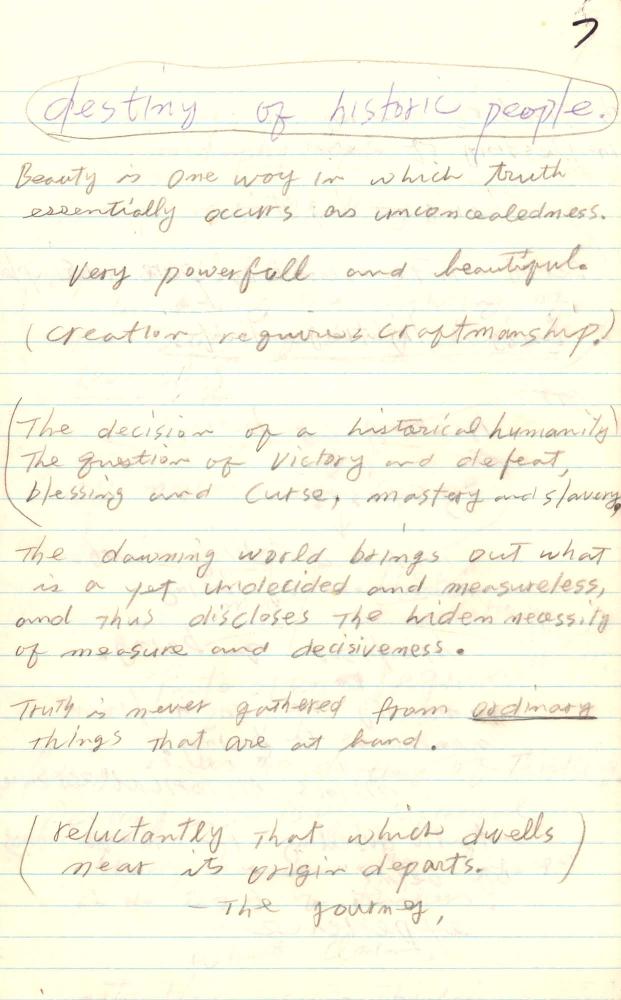 7
destiny of historic people.
Beauty is one way in which truth
essentially occurs as unconcealedness.
Very powerfull and beautiful.
(creation requires craftmanship.)
(The decision of a historical humanity)
The question of Victory and defeat,
blessing and Curse, mastery and slavery.
The dawning world brings out what
is a yet undecided and measureless,
and thus discloses the hiden necessity
of measure and decisiveness.
Truth is never gathered from ordinary
things that are at hand.
(reluctantly that which dwells
near its origin departs.)
- The journey,